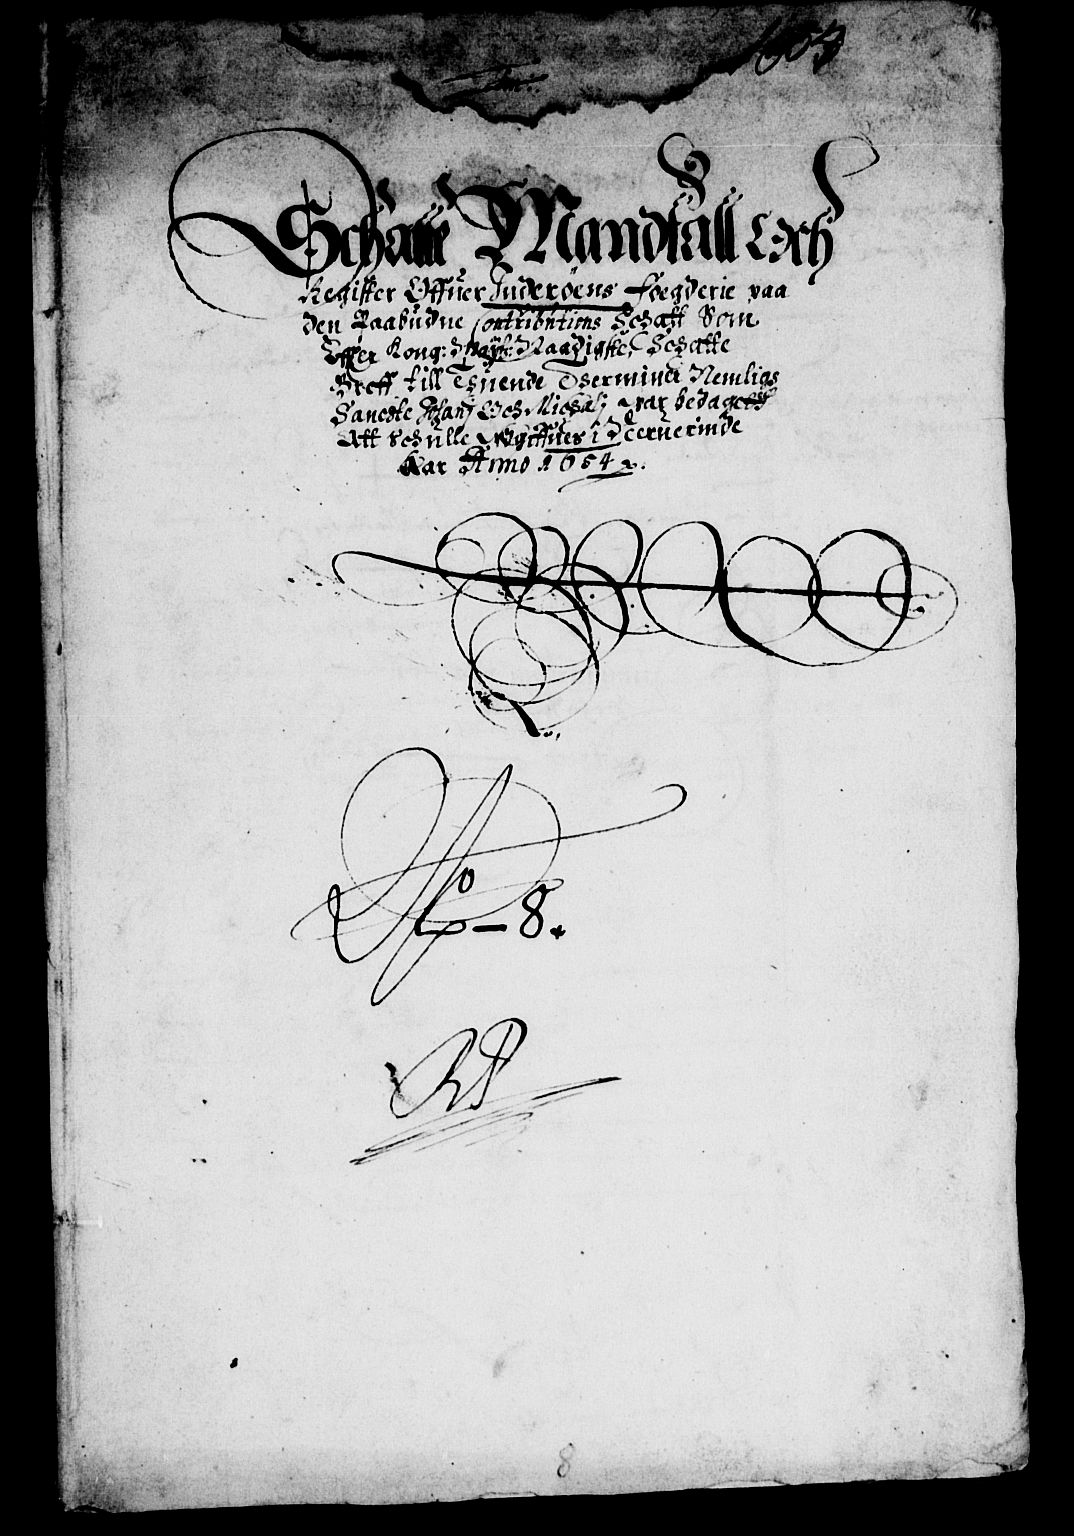 Schatte Mandtall Och
Register Offuer Inderøens Foegderie paa
den Paabudne Contributions Schatt Som
Effter Kong: Mayt: Naadigste Schatte
Breff till Thuende Terminer Nemligs
Sancte Hans Och Michaelj var bedaget
Att Schulle Udgiffues i Neruerinde
Aar Anno 1654
No – 8.
8